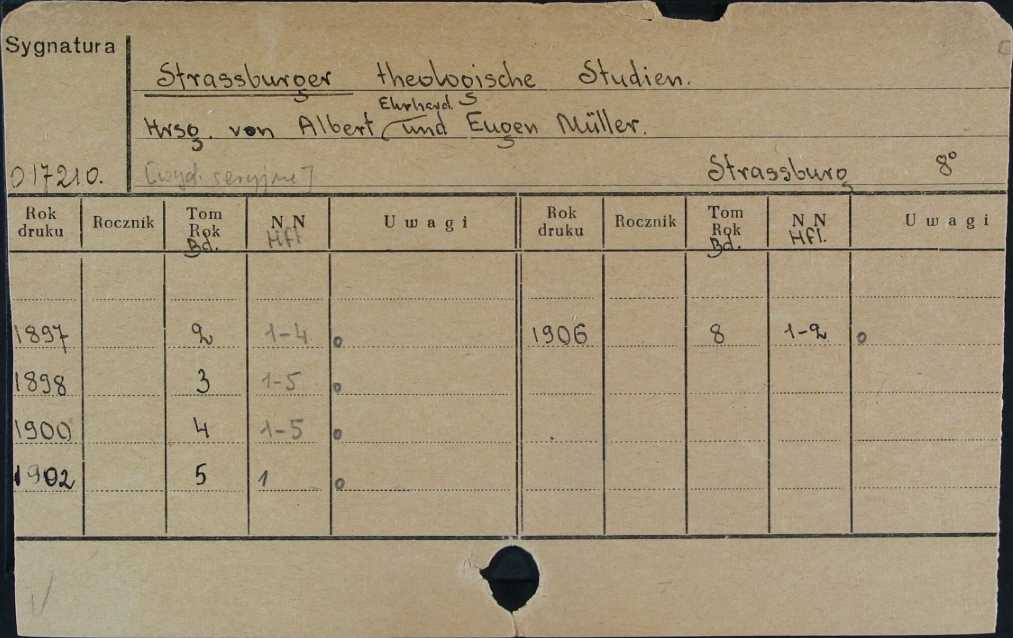 Sygnatura
Strassburger theologische Studien.
Ehrhard
Hrsg. von Albert und Eugen Müller.
017210. [wyd. seryjne] Strassburg 8°
Rok druku Rocznik Tom Rok Bd. N N Hft. Uwagi Rok druku Rocznik Tom Rok Bd. N N Hft. Uwagi
1897 2 1-4 o 1906 8 1-2 o
1898 3 1-5 o
1900 4 1-5 o
1902 5 1 o